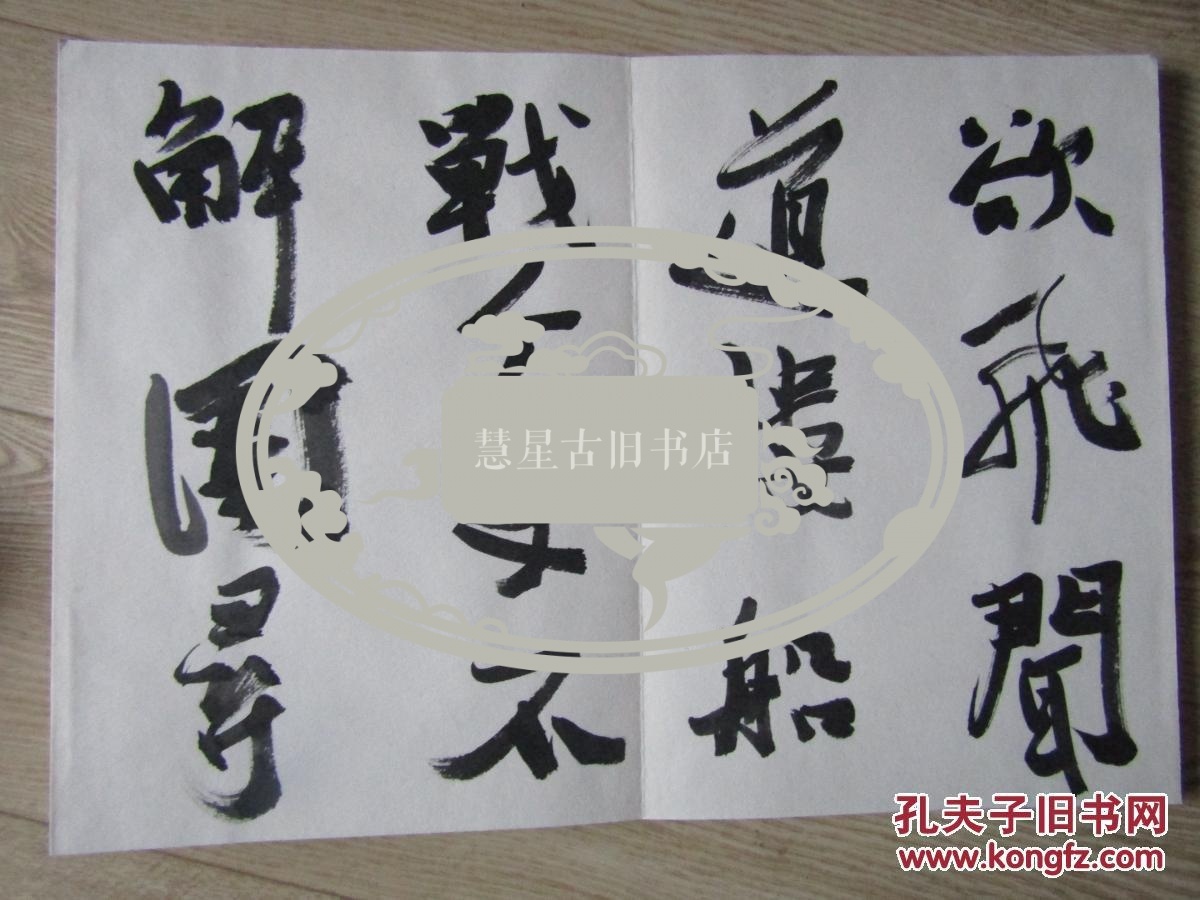 欲飛聞
道樓船
戰
不
解圍尋
慧星古旧书店
孔夫子旧书网
www.kongfz.com